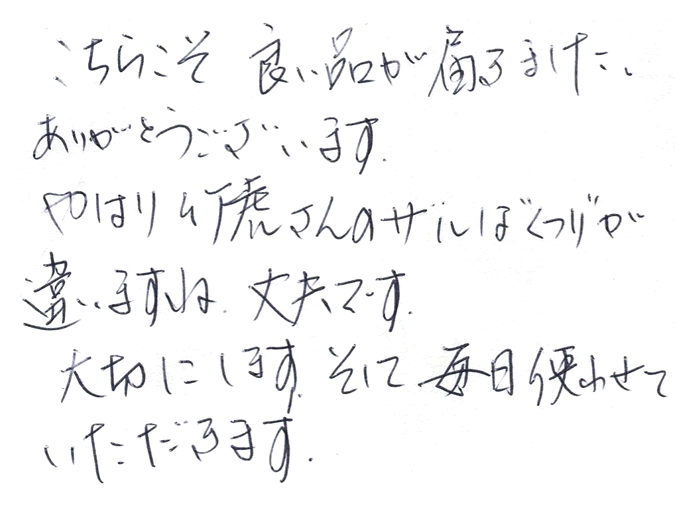 こちらこそ 良い品が届きました、
ありがとうございます.
やはり 虎さんのザルはつくりが
違いますね. 丈夫です.
大切にします. そして 毎日使わせて
いただきます.